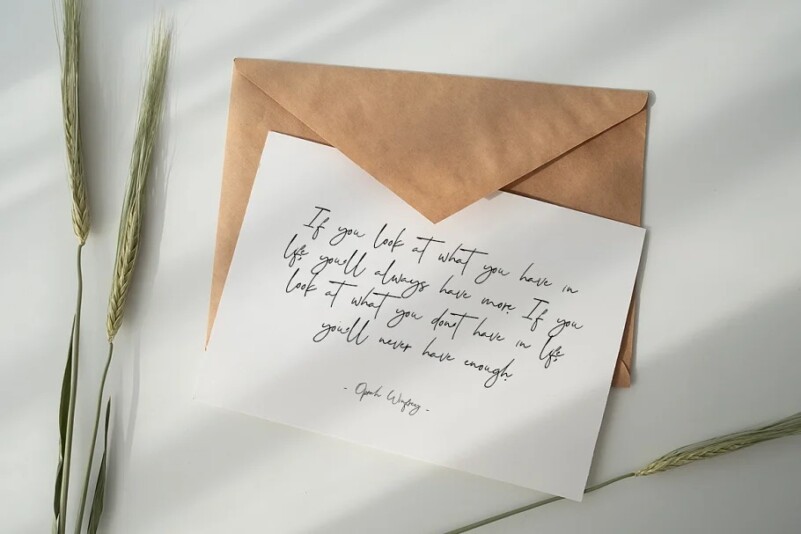 If you look at what you have in
life, you'll always have more. If you
look at what you don't have in life,
you'll never have enough.
- Oprah Winfrey -